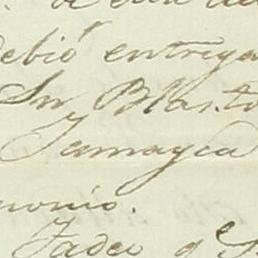 debió entregar
Sn Blas to
Jamayca
monio.
Tadeo qe